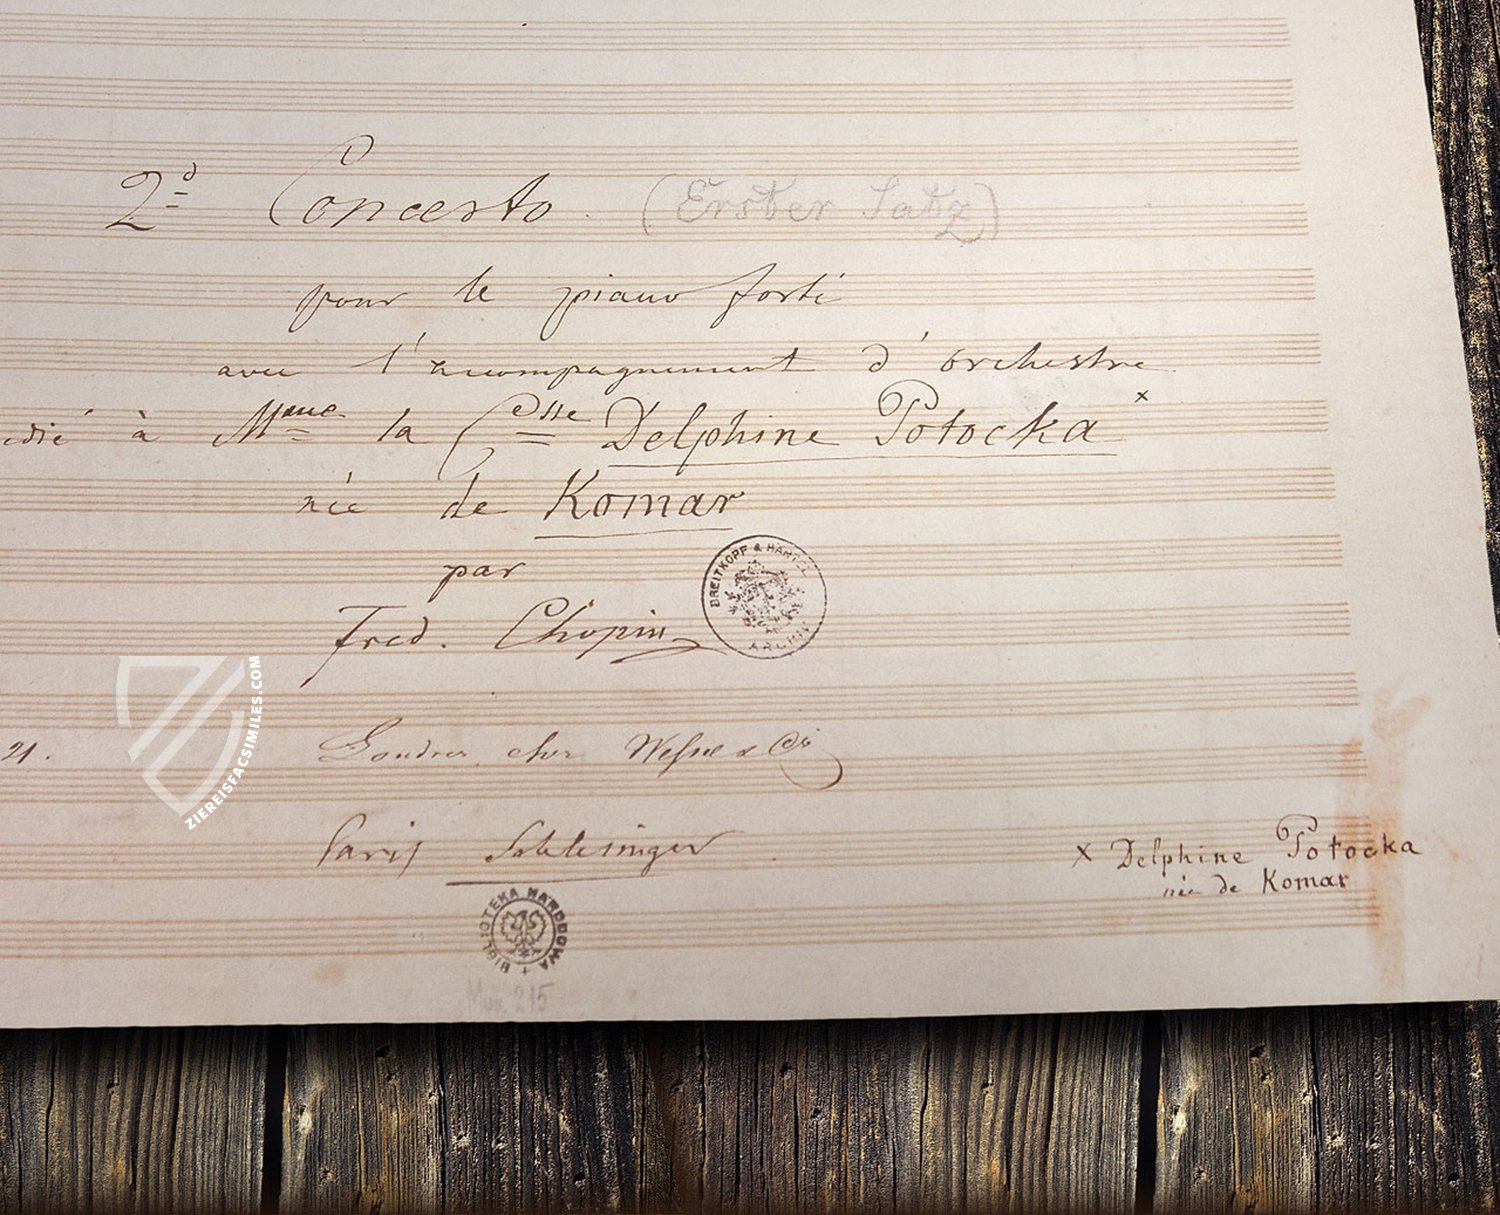 2d Concerto. (Erster Satz)
pour le piano forte
avec l'accompagnement d'orchestre
edié à Mme la Csse Delphine Potocka x
née de Komar
par
Fred. Chopin
BREITKOPF & HÄRTEL
ARCHIV
21. Londres chez Wessel & Co
Paris Schlesinger
x Delphine Potocka
née de Komar
BIBLIOTEKA NARODOWA +
Mus. 215
ZIEREISFACSIMILES.COM